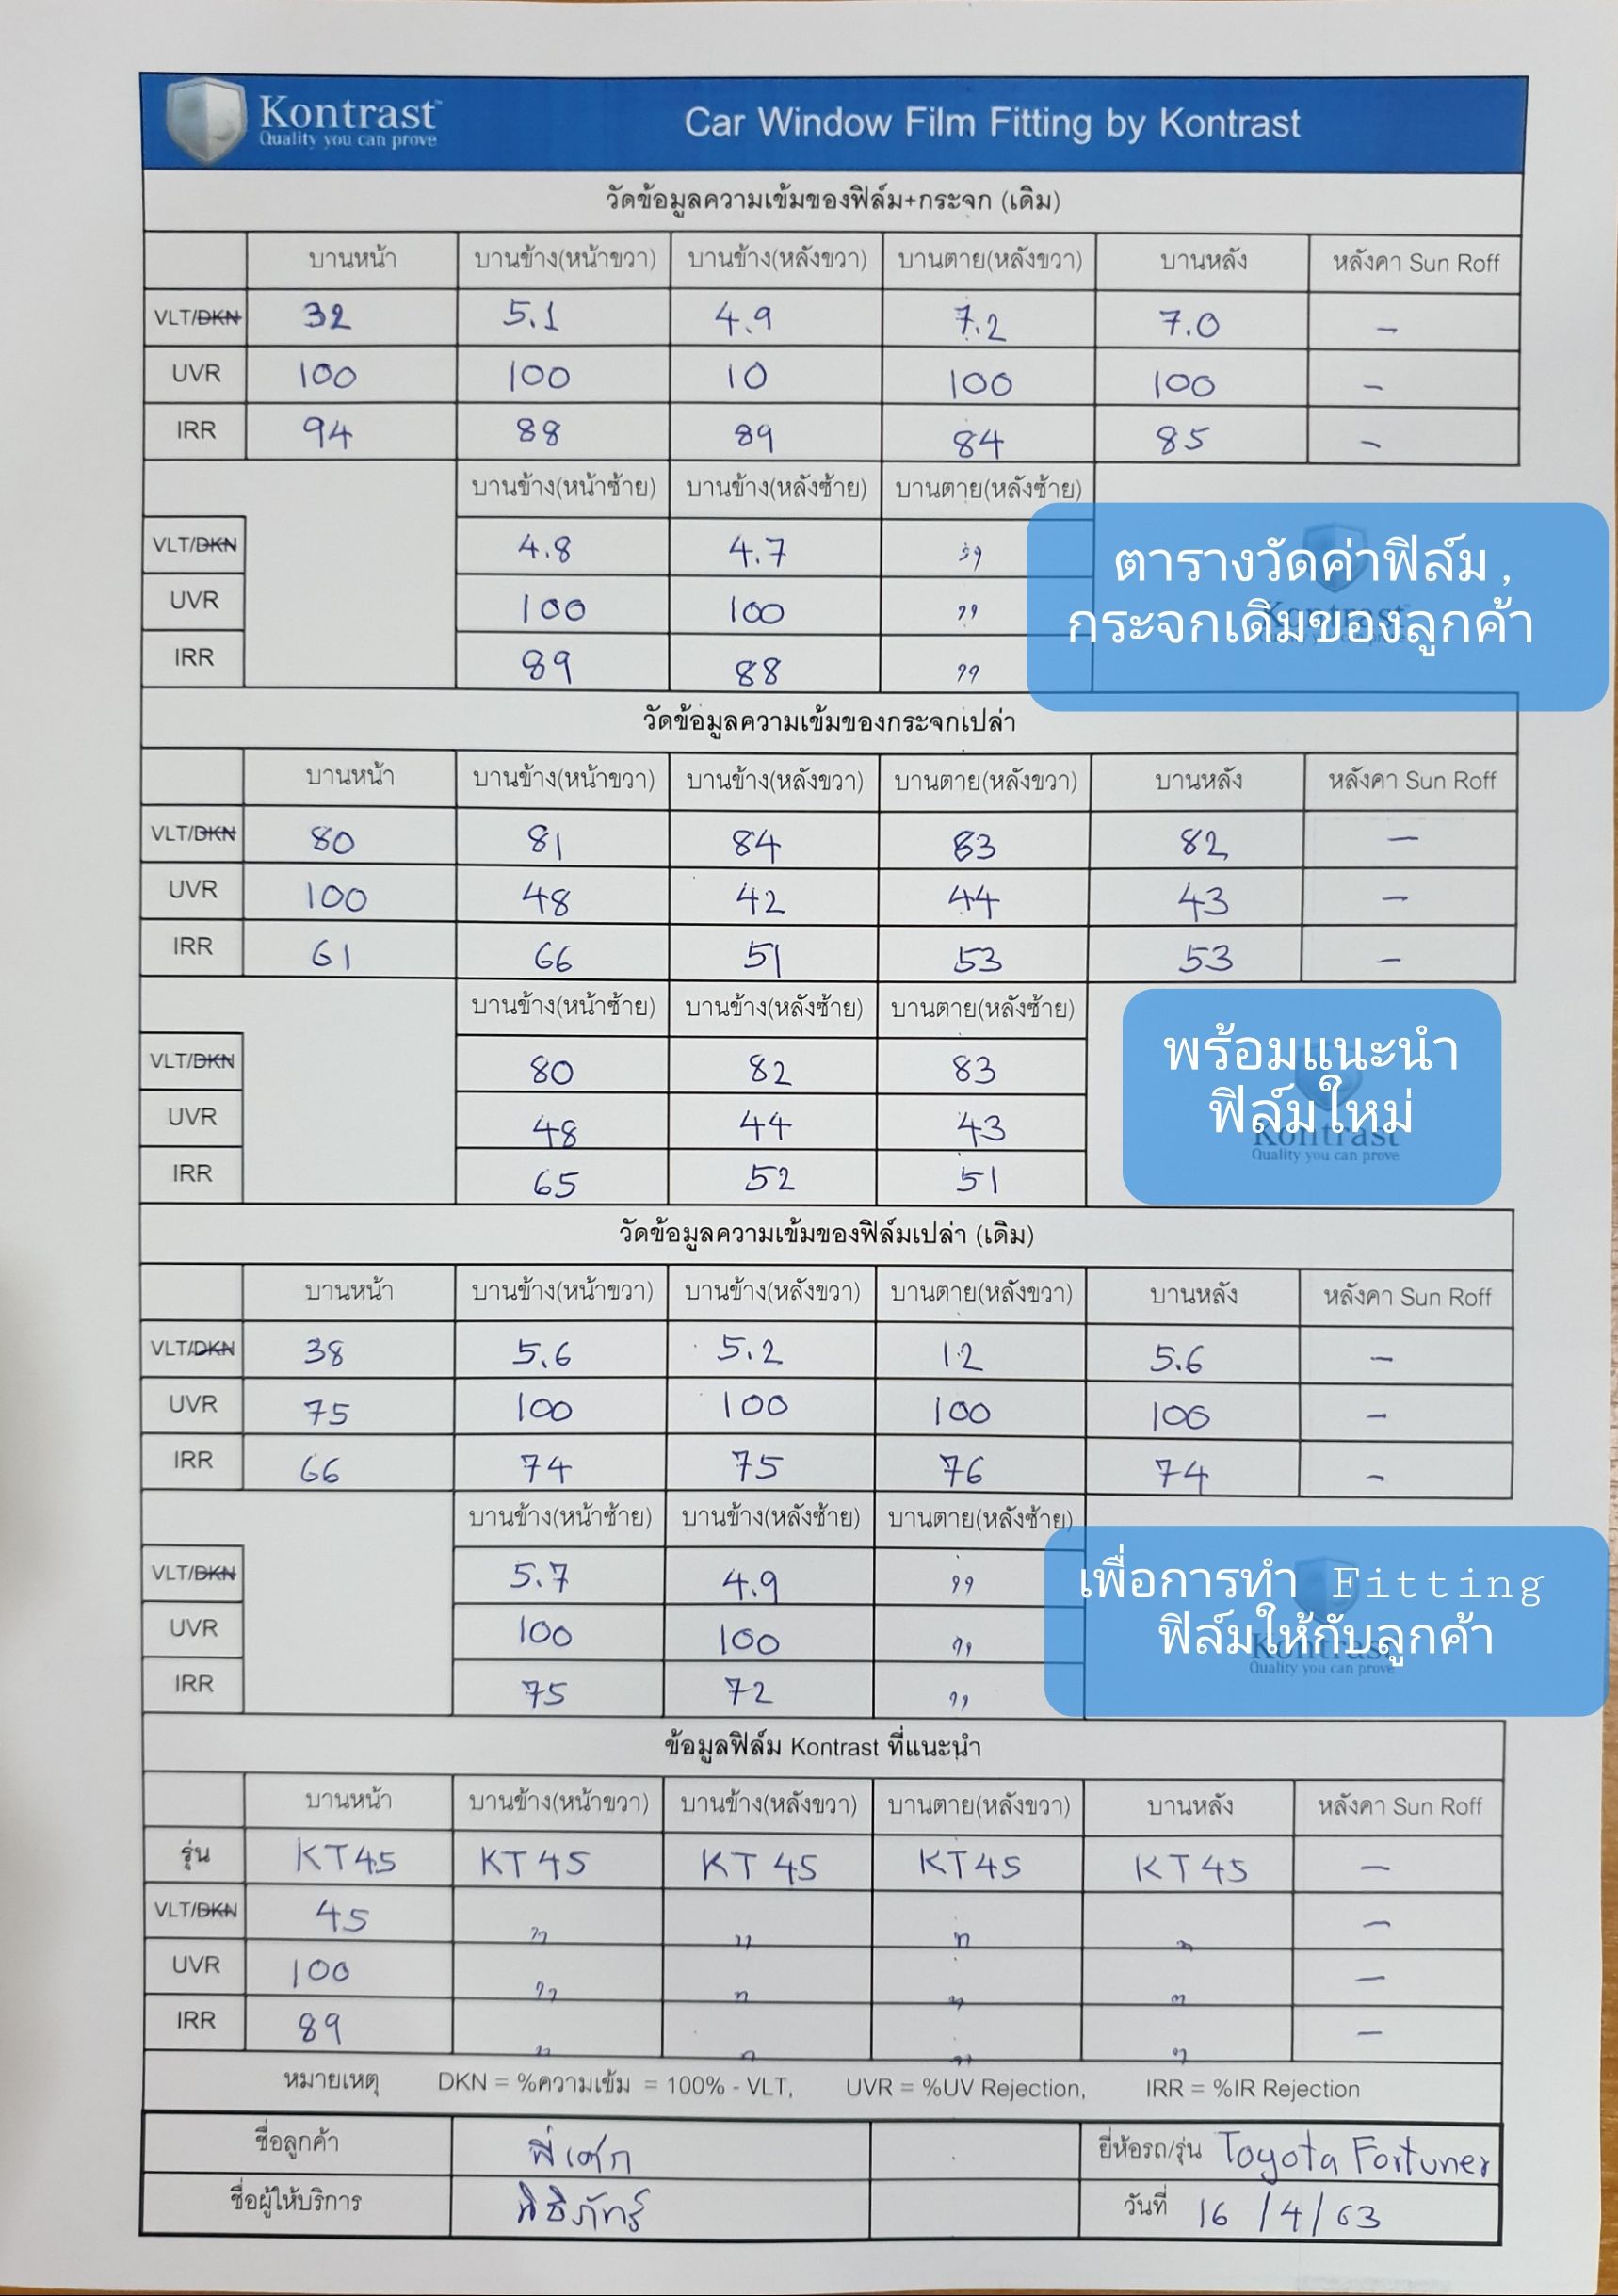 Kontrast
Quality you can prove
Car Window Film Fitting by Kontrast
วัดข้อมูลความเข้มของฟิล์ม+กระจก (เดิม)
บานหน้า บานข้าง(หน้าขวา) บานข้าง(หลังขวา) บานตาย(หลังขวา) บานหลัง หลังคา Sun Roff
VLT/DKN 32 5.1 4.9 7.2 7.0 -
UVR 100 100 10 100 100 -
IRR 94 88 89 84 85 -
บานข้าง(หน้าซ้าย) บานข้าง(หลังซ้าย) บานตาย(หลังซ้าย)
VLT/DKN 4.8 4.7 "
UVR 100 100 "
IRR 89 88 "
ตารางวัดค่าฟิล์ม ,
กระจกเดิมของลูกค้า
วัดข้อมูลความเข้มของกระจกเปล่า
บานหน้า บานข้าง(หน้าขวา) บานข้าง(หลังขวา) บานตาย(หลังขวา) บานหลัง หลังคา Sun Roff
VLT/DKN 80 81 84 83 82 -
UVR 100 48 42 44 43 -
IRR 61 66 51 53 53 -
บานข้าง(หน้าซ้าย) บานข้าง(หลังซ้าย) บานตาย(หลังซ้าย)
VLT/DKN 80 82 83
UVR 48 44 43
IRR 65 52 51
พร้อมแนะนำ
ฟิล์มใหม่
Kontrast
Quality you can prove
วัดข้อมูลความเข้มของฟิล์มเปล่า (เดิม)
บานหน้า บานข้าง(หน้าขวา) บานข้าง(หลังขวา) บานตาย(หลังขวา) บานหลัง หลังคา Sun Roff
VLT/DKN 38 5.6 5.2 12 5.6 -
UVR 75 100 100 100 100 -
IRR 66 74 75 76 74 -
บานข้าง(หน้าซ้าย) บานข้าง(หลังซ้าย) บานตาย(หลังซ้าย)
VLT/DKN 5.7 4.9 "
UVR 100 100 "
IRR 75 72 "
เพื่อการทำ Fitting
ฟิล์มให้กับลูกค้า
Kontrast
Quality you can prove
ข้อมูลฟิล์ม Kontrast ที่แนะนำ
บานหน้า บานข้าง(หน้าขวา) บานข้าง(หลังขวา) บานตาย(หลังขวา) บานหลัง หลังคา Sun Roff
รุ่น KT45 KT45 KT45 KT45 KT45 -
VLT/DKN 45 " " " " -
UVR 100 " " " " -
IRR 89 " " " " -
หมายเหตุ DKN = %ความเข้ม = 100% - VLT, UVR = %UV Rejection, IRR = %IR Rejection
ชื่อลูกค้า พี่เศก ยี่ห้อรถ/รุ่น Toyota Fortuner
ชื่อผู้ให้บริการ วันที่ 16/4/63